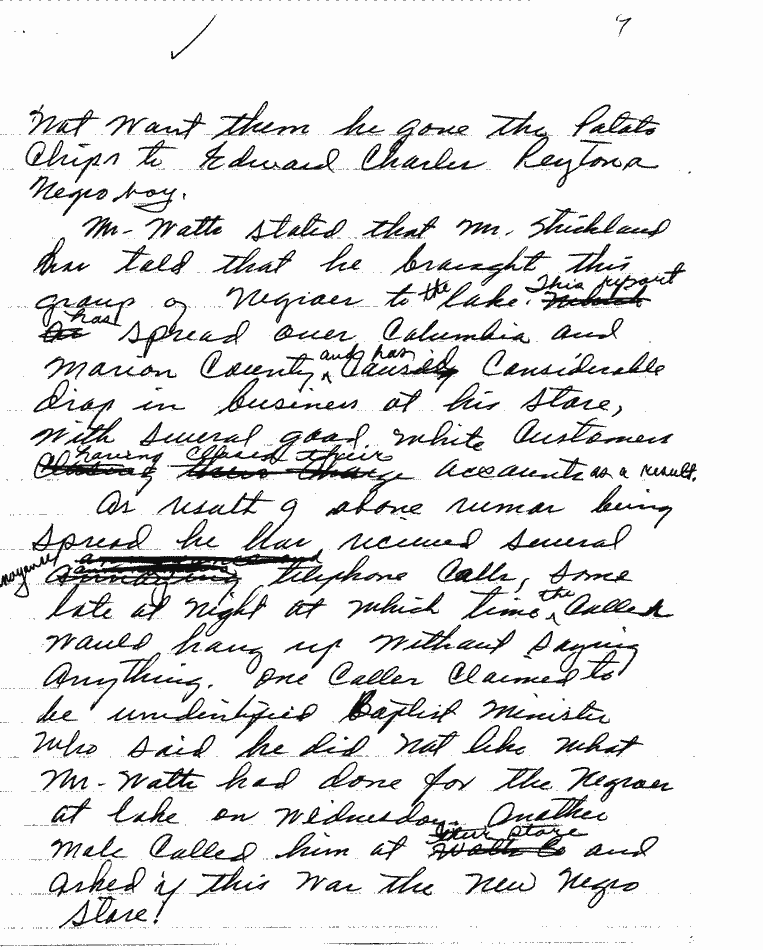 7
Not want them he gave the Potato
Chips to Edward Charles Peyton a
Negro boy.
Mr. Watts stated that Mr. Strickland
has told that he brought this
group of Negroes to the lake. This report
has spread over Columbia and
Marion County, and has caused considerable
drop in business at his store,
with several good white customers
having closed their accounts as a result.
As result of above rumor being
spread he has received several
annoyance telephone calls, some
late at night at which time the caller
would hang up without saying
anything. One caller claimed to
be unidentified Baptist Minister
who said he did not like what
Mr. Watts had done for the Negroes
at lake on Wednesday. Another
male called him at their store and
asked if this was the new Negro
store!